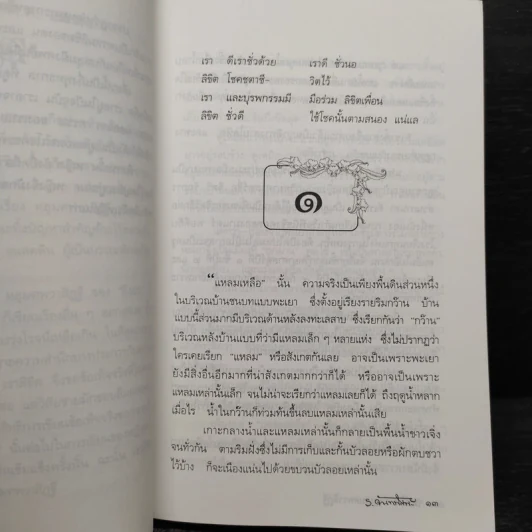 เรา ดีเราชั่วด้วย เราดี ชั่วนอ
ลิขิต โชคชตาชี- วิตไว้
เรา และบุรพกรรมมี มือร่วม ลิขิตเพื่อน
ลิขิต ชั่วดี ใช้โชคนั้นตามสนอง แน่แล
๑
“แหลมเหลือ” นั้น ความจริงเป็นเพียงพื้นดินส่วนหนึ่ง
ในบริเวณบ้านชนบทแบบพะเยา ซึ่งตั้งอยู่เรียงรายริมกว๊าน บ้าน
แบบนี้ส่วนมากมีบริเวณด้านหลังลงทะเลสาบ ซึ่งเรียกกันว่า “กว๊าน”
บริเวณหลังบ้านแบบที่ว่ามีแหลมเล็ก ๆ หลายแห่ง ซึ่งไม่ปรากฏว่า
ใครเคยเรียก “แหลม” หรือสังเกตกันเลย อาจเป็นเพราะพะเยา
ยังมีสิ่งอื่นอีกมากที่น่าสังเกตมากกว่าก็ได้ หรืออาจเป็นเพราะ
แหลมเหล่านั้นเล็ก จนไม่น่าจะเรียกว่าแหลมเลยก็ได้ ถึงฤดูน้ำหลาก
เมื่อไร น้ำในกว๊านก็ท่วมท้นขึ้นลบแหลมเหล่านั้นเสีย
เกาะกลางน้ำและแหลมเหล่านั้นก็กลายเป็นพื้นน้ำขาวเจิ่ง
จนทั่วกัน ตามริมฝั่งซึ่งไม่มีการเก็บและกั้นบัวลอยหรือผักตบชวา
ไว้บ้าง ก็จะเนืองแน่นไปด้วยขบวนบัวลอยเหล่านั้น
๑๓